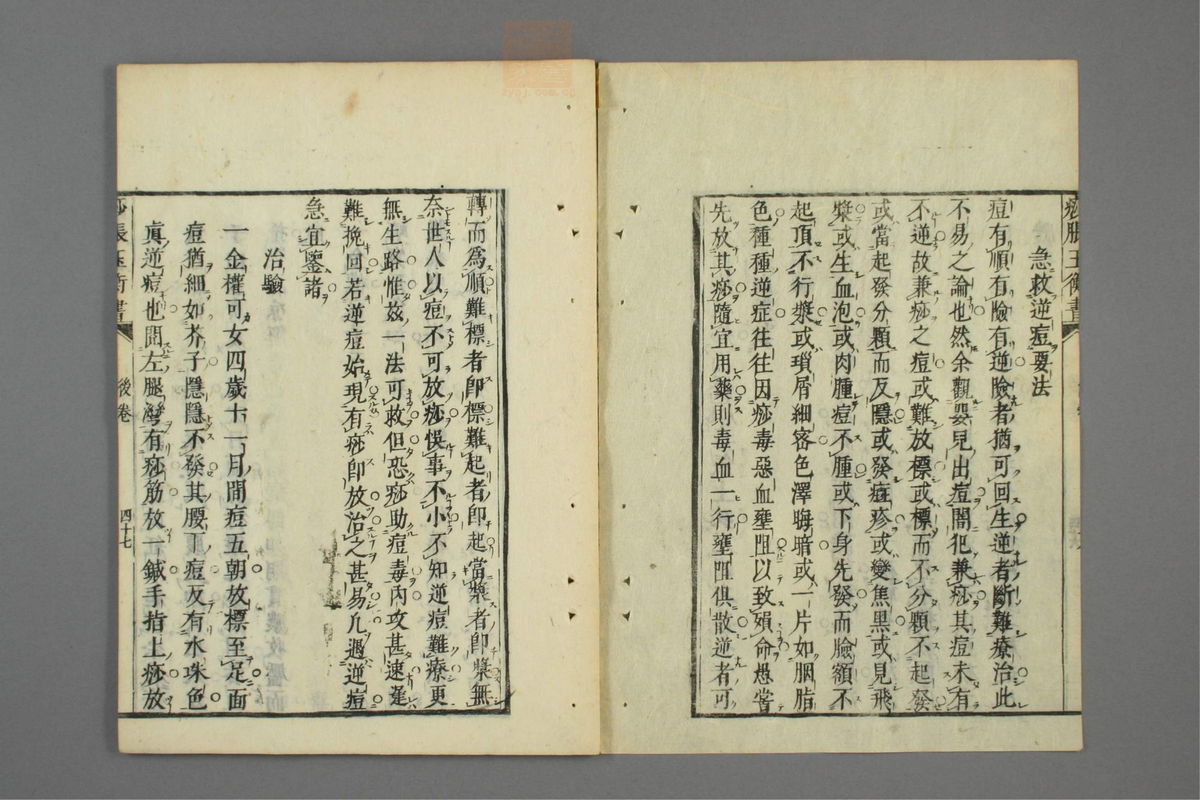 急救逆痘要法
痘有順有險有逆險者猶可回生逆者斷難療治此
不易之論也然余觀嬰兒出痘闇犯兼痧其痘未有
不逆故兼痧之痘或難放標或標而不分顆不起發
或當起發分顆而反隱或發斑疹或變焦黑或見飛
漿或生血泡或肉腫痘不腫或下身先發而臉額不
起頂不行漿或瑣屑細密色澤晦暗或一片如胭脂
色種種逆症往往因痧毒惡血壅阻以致殞命愚嘗
先放其痧隨宜用藥則毒血一行壅阻俱散逆者可
轉而爲順難標者卽標難起者卽起當漿者卽漿無
奈世人以痘不可放痧悞事不小不知逆痘難療更
無生路惟玆一法可救但恐痧助痘毒內攻甚速遂
難挽回若逆痘始現有痧卽放治之甚易凡遇逆痘
急宜鑒諸
治驗
一金權可女四歲十一月間痘五朝放標至足面
痘猶細如芥子隱隱不發其腰頂痘反有水珠色
眞逆痘也閱左腿灣有痧筋放一鍼手指上痧放
痧脹玉衡書
後卷
四十七